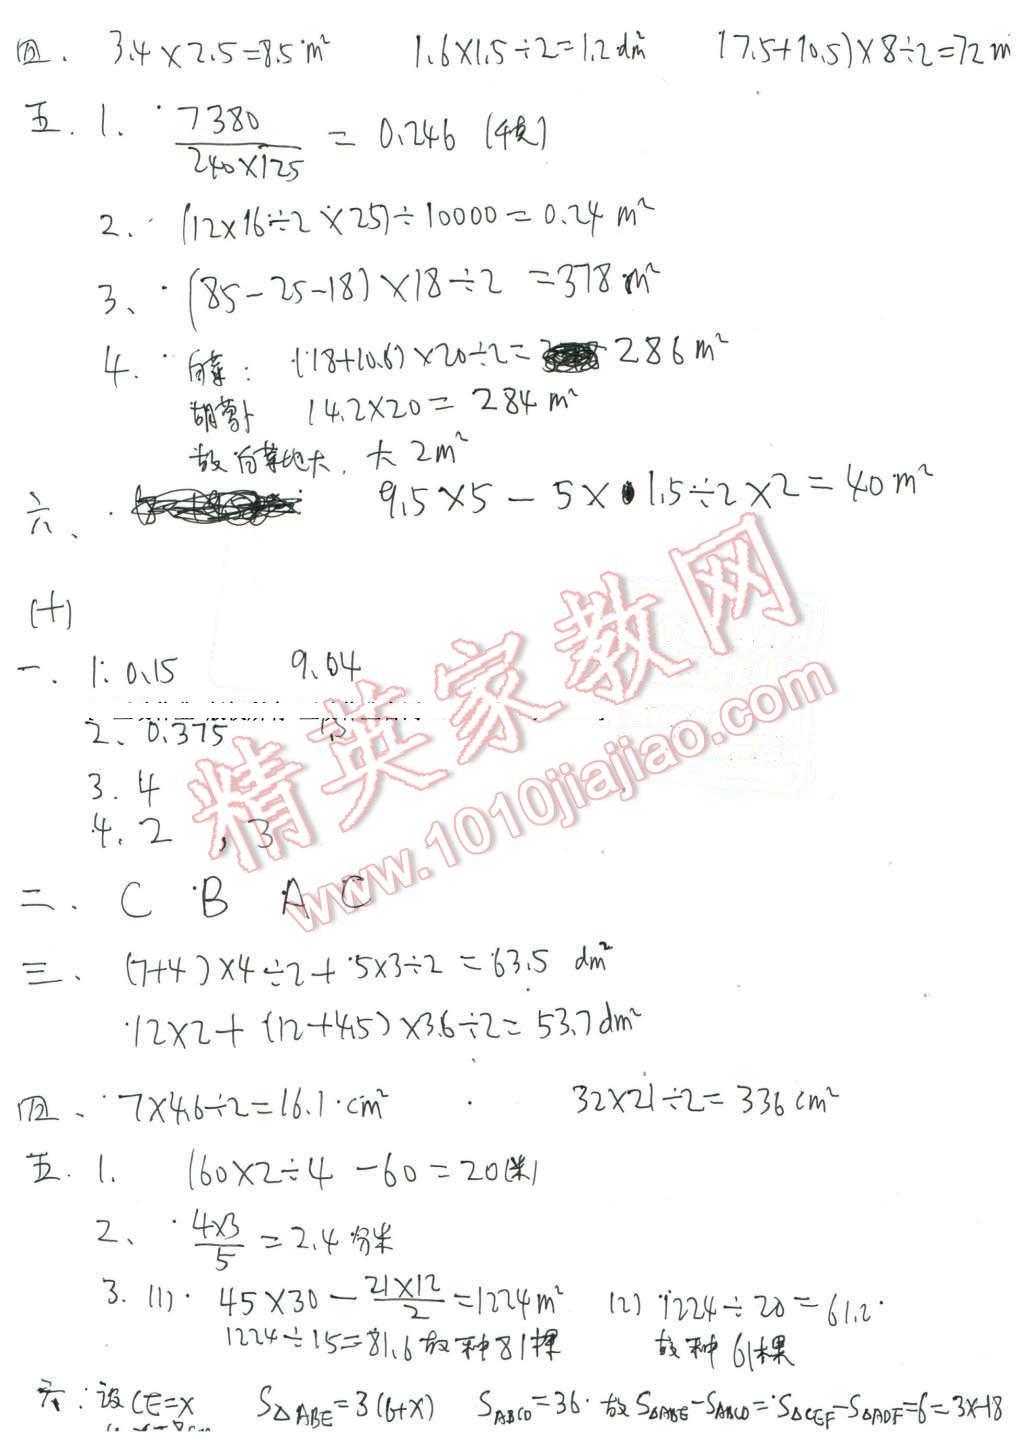 四. 3.4×2.5=8.5m² 1.6×1.5÷2=1.2dm² (7.5+10.5)×8÷2=72m
五. 1. 7380/(240×125) = 0.246 (千克)
2. (12×16÷2×25)÷10000=0.24m²
3、(85-25-18)×18÷2=378m²
4. 白菜: (18+10.6)×20÷2= 286m²
胡萝卜 14.2×20=284m²
故白菜地大,大2m²
六、 9.5×5-5×1.5÷2×2=40m²
(十)
一. 1. 0.15 9.04
2、0.375
3. 4
4. 2 , 3
二. C B A C
三、(7+4)×4÷2+5×3÷2=63.5 dm²
12×2+(12+4.5)×3.6÷2=53.7dm²
四、7×4.6÷2=16.1cm² 32×21÷2=336cm²
五. 1. 160×2÷4-60=20(米)
2、4×3/5=2.4分米
3. (1) 45×30-21×12/2=1224m² (2) 1224÷20=61.2
1224÷15=81.6故种81棵 故种61棵
六:设CE=x S△ABE=3(6+x) SABCD=36 故S△ABE-SABCD=S△CEF-S△ADF=6=3x-18
精英家教网
www.1010jiajiao.com